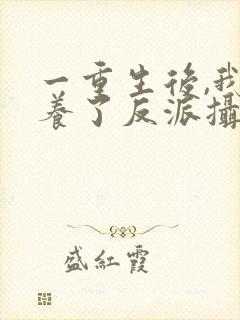 一重生後,我
養了反派攝
盛紅霞